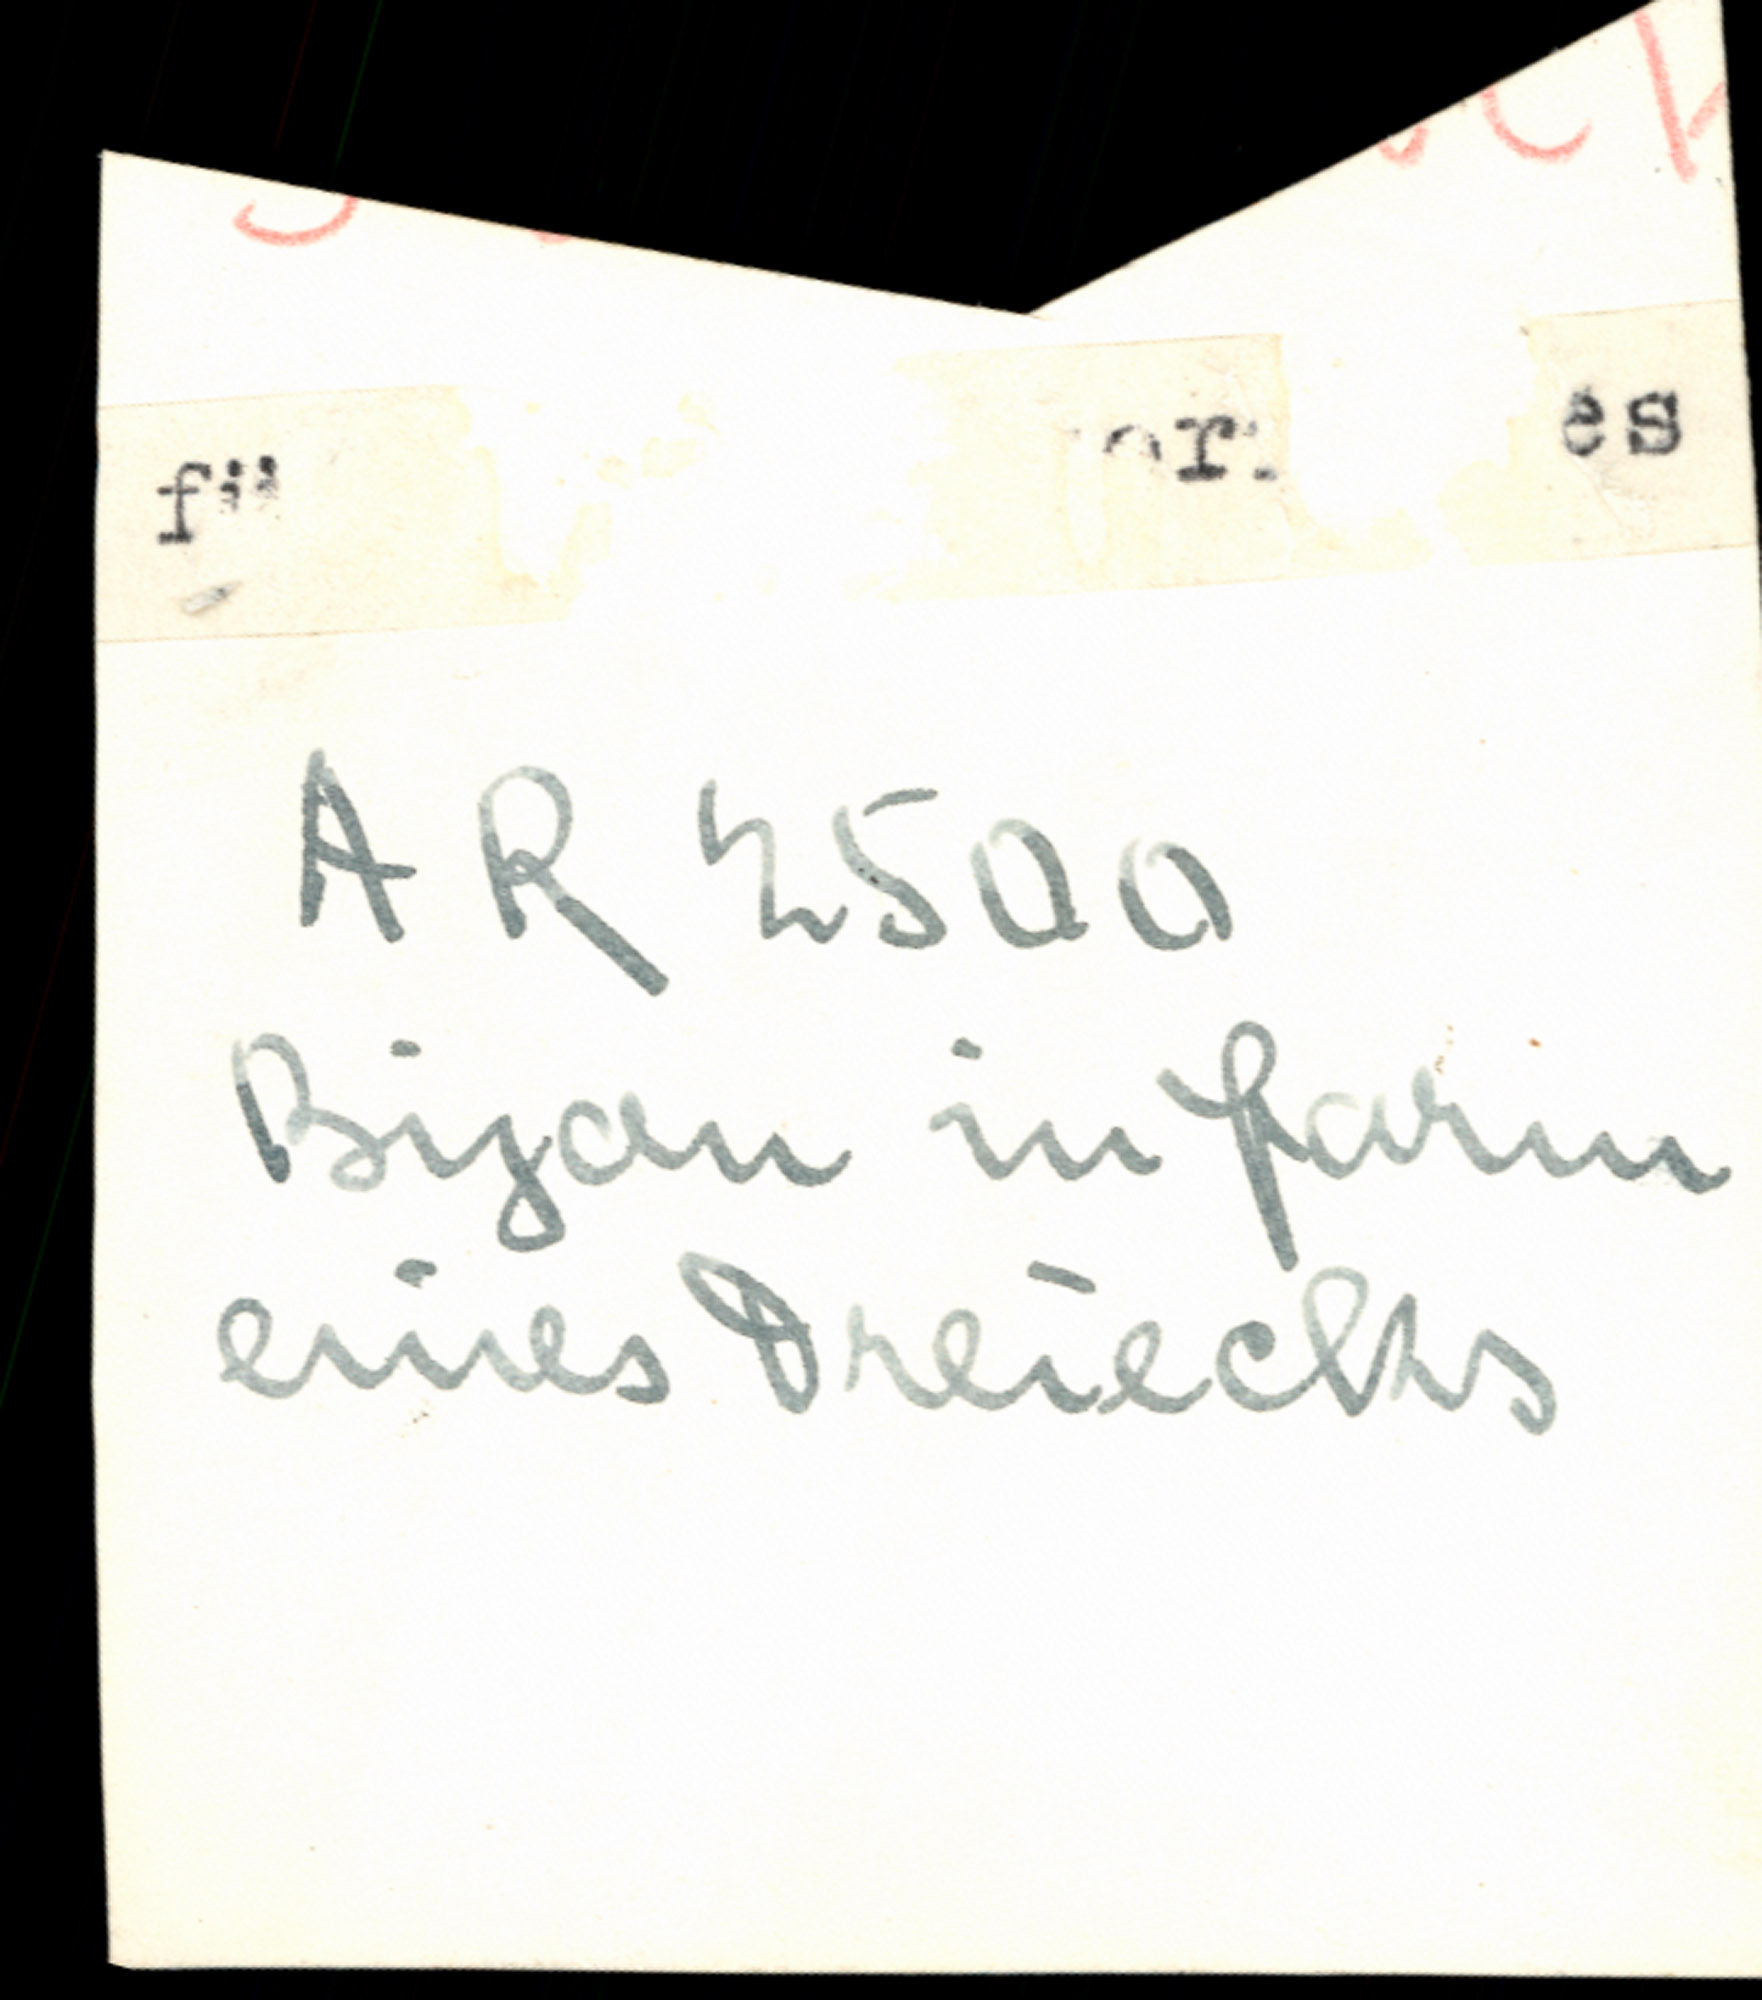 es
AR 2500
Bijou in Form
eines Dreiecks